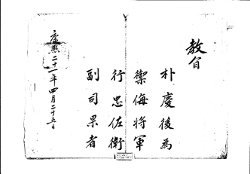 教旨
朴慶後為
禦侮將軍
行忠佐衛
副司果者
康熙二十一年四月二十五日